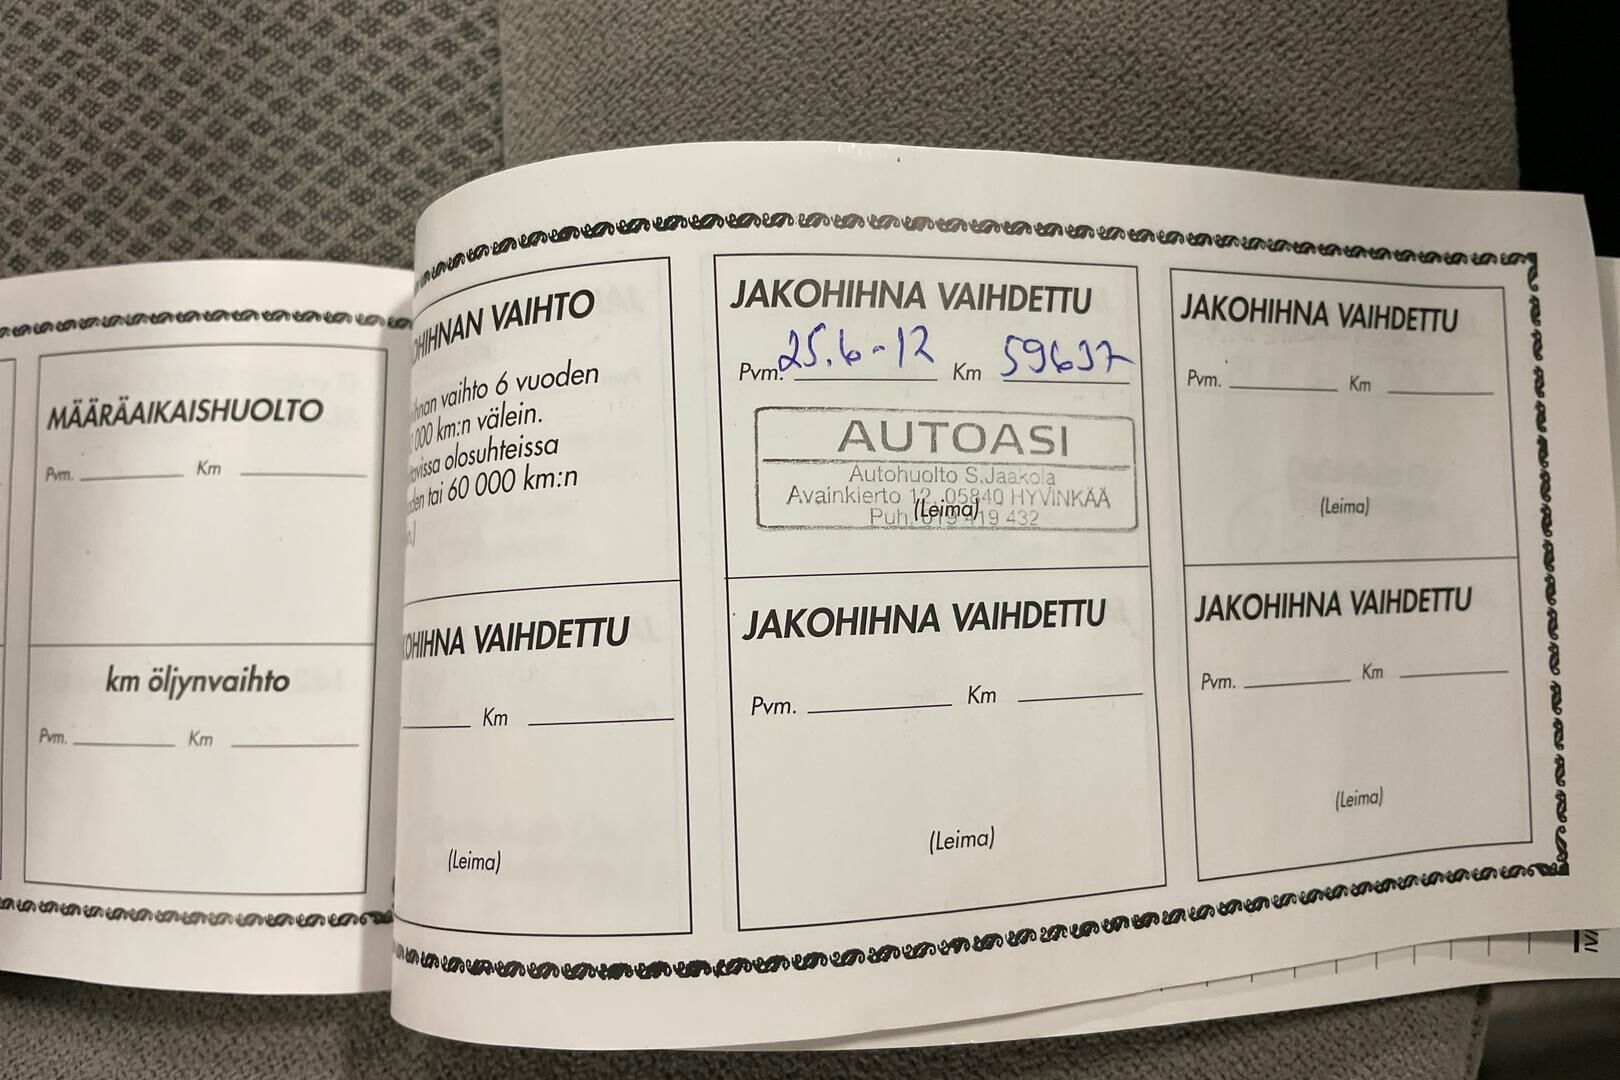 MÄÄRÄAIKAISHUOLTO
Pvm. Km
km öljynvaihto
Pvm. Km
OHIHNAN VAIHTO
vaihto 6 vuoden
000 km:n välein.
olosuhteissa
tai 60 000 km:n
OHIHNA VAIHDETTU
Km
(Leima)
JAKOHIHNA VAIHDETTU
Pvm. 25.6-12 Km 59637
AUTOASI
Autohuolto S.Jaakola
Avainkierto 12, 05840 HYVINKÄÄ
(Leima)
Puh. 019 419 432
JAKOHIHNA VAIHDETTU
Pvm. Km
(Leima)
JAKOHIHNA VAIHDETTU
Pvm. Km
(Leima)
JAKOHIHNA VAIHDETTU
Pvm. Km
(Leima)